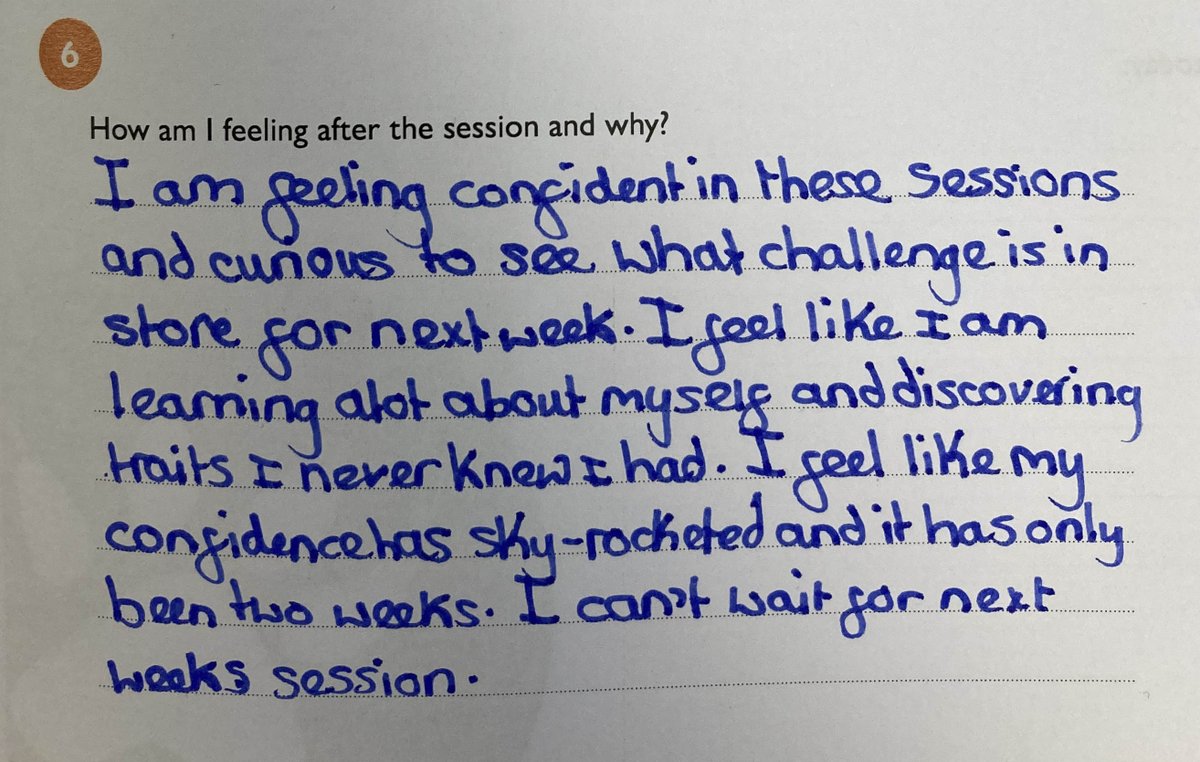 6
How am I feeling after the session and why?
I am feeling confident in these sessions
and curious to see what challenge is in
store for next week. I feel like I am
learning alot about myself and discovering
traits I never knew I had. I feel like my
confidence has sky-rocketed and it has only
been two weeks. I can't wait for next
weeks session.